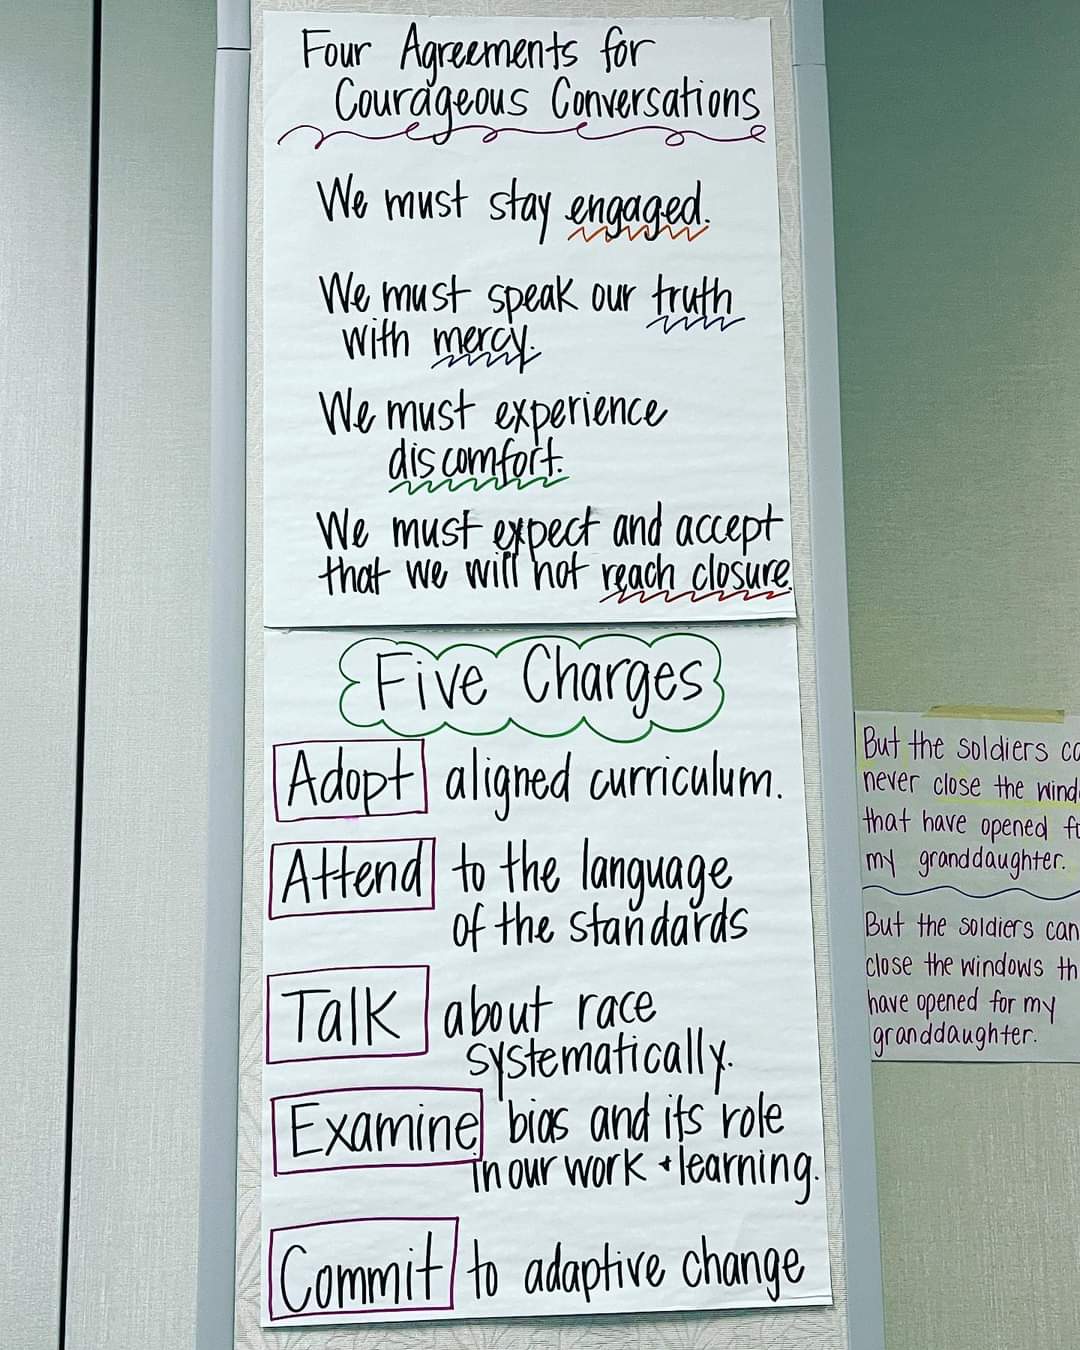 Four Agreements for
Courageous Conversations
We must stay engaged.
We must speak our truth
with mercy.
We must experience
discomfort.
We must expect and accept
that we will not reach closure.
Five Charges
Adopt aligned curriculum.
Attend to the language
of the standards
Talk about race
systematically.
Examine bias and its role
in our work + learning.
Commit to adaptive change
But the soldiers
never close the
that have opened
my granddaughter.
But the soldiers can
close the windows
have opened for my
granddaughter.